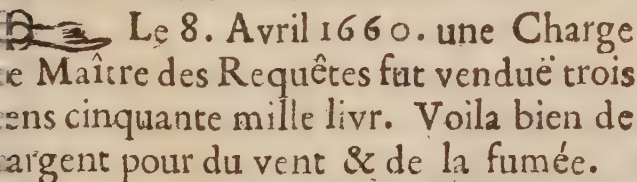 Le 8. Avril 1660. une Charge
e Maître des Requêtes fut venduë trois
ens cinquante mille livr. Voila bien de
argent pour du vent & de la fumée.